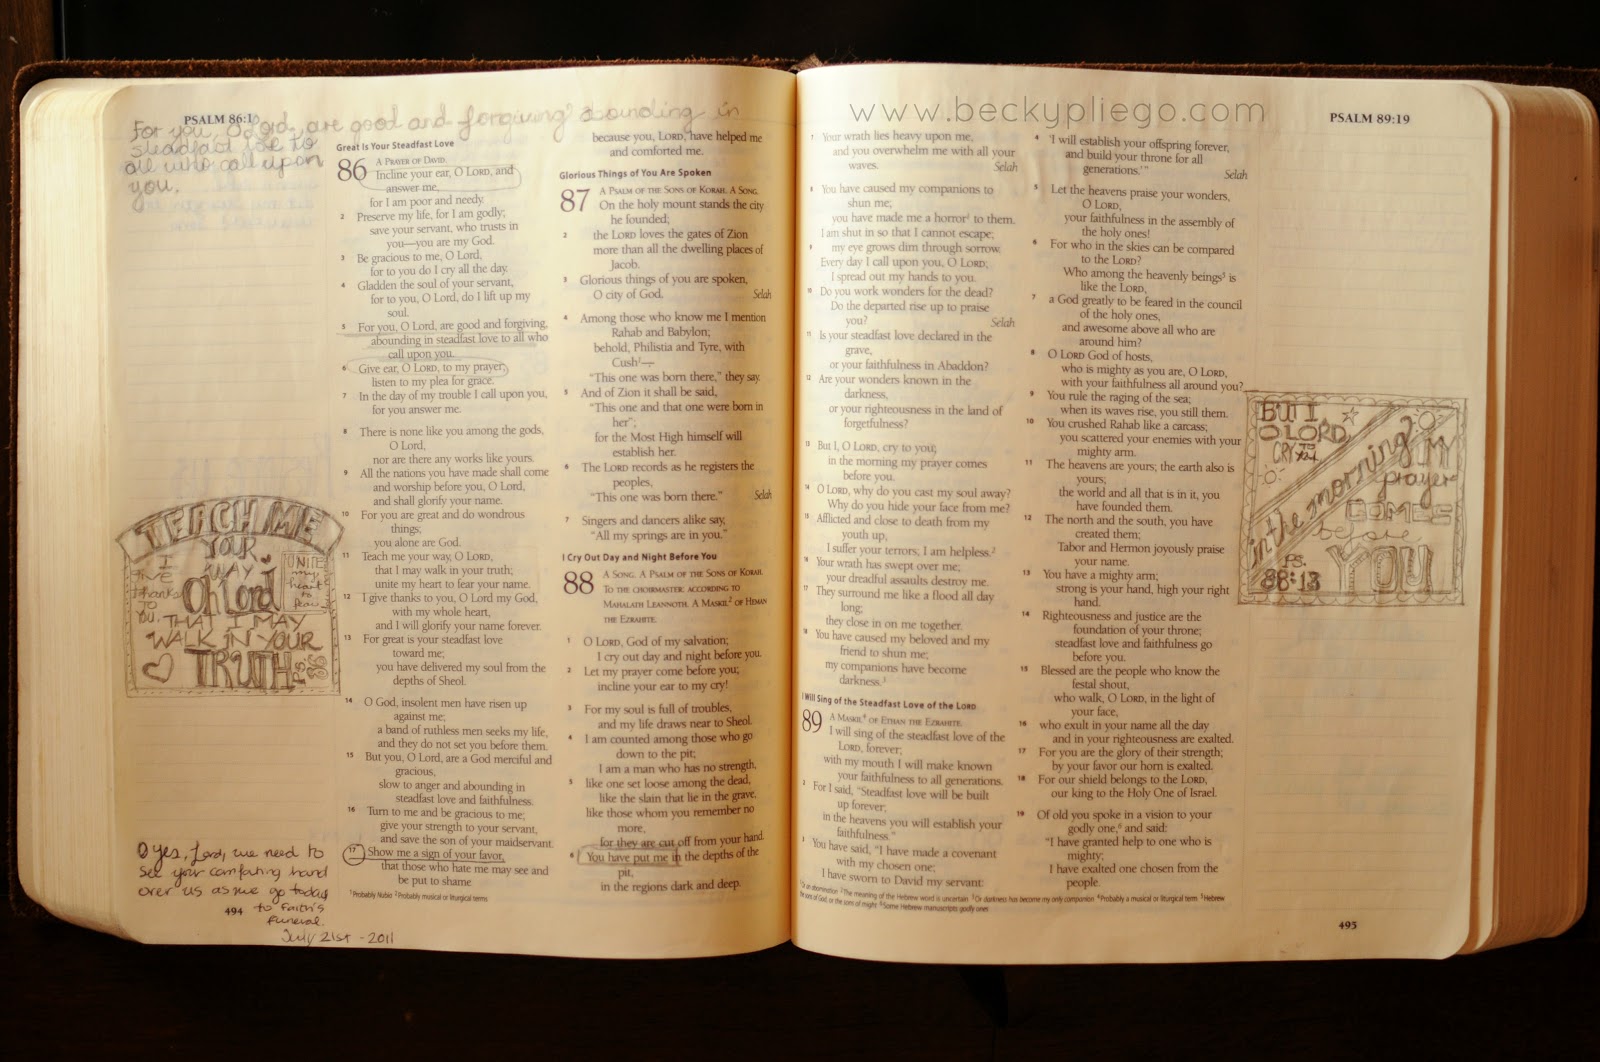 www.beckypliego.com
PSALM 86:1
For you, O Lord, are good and forgiving abounding in
steadfast love to
all who call upon
you.
TEACH ME
YOUR
WAY
Oh Lord
I
give
thanks
TO
YOU,
UNITE
my
heart
to
fear
THAT I MAY
WALK IN YOUR
TRUTH
PS
86
O yes, Lord, we need to
see your comforting hand
over us as we go today
to Faith's
funeral.
July 21st - 2011
494
Great Is Your Steadfast Love
86 A PRAYER OF DAVID.
Incline your ear, O LORD, and
answer me,
for I am poor and needy.
2 Preserve my life, for I am godly;
save your servant, who trusts in
you—you are my God.
3 Be gracious to me, O Lord,
for to you do I cry all the day.
4 Gladden the soul of your servant,
for to you, O Lord, do I lift up my
soul.
5 For you, O Lord, are good and forgiving,
abounding in steadfast love to all who
call upon you.
6 Give ear, O LORD, to my prayer;
listen to my plea for grace.
7 In the day of my trouble I call upon you,
for you answer me.
8 There is none like you among the gods,
O Lord,
nor are there any works like yours.
9 All the nations you have made shall come
and worship before you, O Lord,
and shall glorify your name.
10 For you are great and do wondrous
things;
you alone are God.
11 Teach me your way, O LORD,
that I may walk in your truth;
unite my heart to fear your name.
12 I give thanks to you, O Lord my God,
with my whole heart,
and I will glorify your name forever.
13 For great is your steadfast love
toward me;
you have delivered my soul from the
depths of Sheol.
14 O God, insolent men have risen up
against me;
a band of ruthless men seeks my life,
and they do not set you before them.
15 But you, O Lord, are a God merciful and
gracious,
slow to anger and abounding in
steadfast love and faithfulness.
16 Turn to me and be gracious to me;
give your strength to your servant,
and save the son of your maidservant.
17 Show me a sign of your favor,
that those who hate me may see and
be put to shame
1 Probably Nubia 2 Probably musical or liturgical terms
because you, LORD, have helped me
and comforted me.
Glorious Things of You Are Spoken
87 A PSALM OF THE SONS OF KORAH. A SONG.
On the holy mount stands the city
he founded;
2 the LORD loves the gates of Zion
more than all the dwelling places of
Jacob.
3 Glorious things of you are spoken,
O city of God. Selah
4 Among those who know me I mention
Rahab and Babylon;
behold, Philistia and Tyre, with
Cush1—
“This one was born there,” they say.
5 And of Zion it shall be said,
“This one and that one were born in
her”;
for the Most High himself will
establish her.
6 The LORD records as he registers the
peoples,
“This one was born there.” Selah
7 Singers and dancers alike say,
“All my springs are in you.”
I Cry Out Day and Night Before You
88 A SONG. A PSALM OF THE SONS OF KORAH.
TO THE CHOIRMASTER: ACCORDING TO
MAHALATH LEANNOTH. A MASKIL2 OF HEMAN
THE EZRAHITE.
1 O LORD, God of my salvation;
I cry out day and night before you.
2 Let my prayer come before you;
incline your ear to my cry!
3 For my soul is full of troubles,
and my life draws near to Sheol.
4 I am counted among those who go
down to the pit;
I am a man who has no strength,
5 like one set loose among the dead,
like the slain that lie in the grave,
like those whom you remember no
more,
for they are cut off from your hand.
6 You have put me in the depths of the
pit,
in the regions dark and deep.
7 Your wrath lies heavy upon me,
and you overwhelm me with all your
waves. Selah
8 You have caused my companions to
shun me;
you have made me a horror1 to them.
I am shut in so that I cannot escape;
9 my eye grows dim through sorrow.
Every day I call upon you, O LORD;
I spread out my hands to you.
10 Do you work wonders for the dead?
Do the departed rise up to praise
you? Selah
11 Is your steadfast love declared in the
grave,
or your faithfulness in Abaddon?
12 Are your wonders known in the
darkness,
or your righteousness in the land of
forgetfulness?
13 But I, O LORD, cry to you;
in the morning my prayer comes
before you.
14 O LORD, why do you cast my soul away?
Why do you hide your face from me?
15 Afflicted and close to death from my
youth up,
I suffer your terrors; I am helpless.2
16 Your wrath has swept over me;
your dreadful assaults destroy me.
17 They surround me like a flood all day
long;
they close in on me together.
18 You have caused my beloved and my
friend to shun me;
my companions have become
darkness.3
I Will Sing of the Steadfast Love of the LORD
89 A MASKIL4 OF ETHAN THE EZRAHITE.
I will sing of the steadfast love of the
LORD, forever;
with my mouth I will make known
your faithfulness to all generations.
2 For I said, “Steadfast love will be built
up forever;
in the heavens you will establish your
faithfulness.”
3 You have said, “I have made a covenant
with my chosen one;
I have sworn to David my servant:
PSALM 89:19
4 ‘I will establish your offspring forever,
and build your throne for all
generations.’” Selah
5 Let the heavens praise your wonders,
O LORD,
your faithfulness in the assembly of
the holy ones!
6 For who in the skies can be compared
to the LORD?
Who among the heavenly beings5 is
like the LORD,
7 a God greatly to be feared in the council
of the holy ones,
and awesome above all who are
around him?
8 O LORD God of hosts,
who is mighty as you are, O LORD,
with your faithfulness all around you?
9 You rule the raging of the sea;
when its waves rise, you still them.
10 You crushed Rahab like a carcass;
you scattered your enemies with your
mighty arm.
11 The heavens are yours; the earth also is
yours;
the world and all that is in it, you
have founded them.
12 The north and the south, you have
created them;
Tabor and Hermon joyously praise
your name.
13 You have a mighty arm;
strong is your hand, high your right
hand.
14 Righteousness and justice are the
foundation of your throne;
steadfast love and faithfulness go
before you.
15 Blessed are the people who know the
festal shout,
who walk, O LORD, in the light of
your face,
16 who exult in your name all the day
and in your righteousness are exalted.
17 For you are the glory of their strength;
by your favor our horn is exalted.
18 For our shield belongs to the LORD,
our king to the Holy One of Israel.
19 Of old you spoke in a vision to your
godly one,6 and said:
“I have granted help to one who is
mighty;
I have exalted one chosen from the
people.
1 Or an abomination 2 The meaning of the Hebrew word is uncertain 3 Or darkness has become my only companion 4 Probably a musical or liturgical term 5 Hebrew
the sons of God, or the sons of might 6 Some Hebrew manuscripts godly ones
495
BUT I
O LORD
CRY TO
in the morning MY
prayer
COMES
before
YOU
PS.
88:13